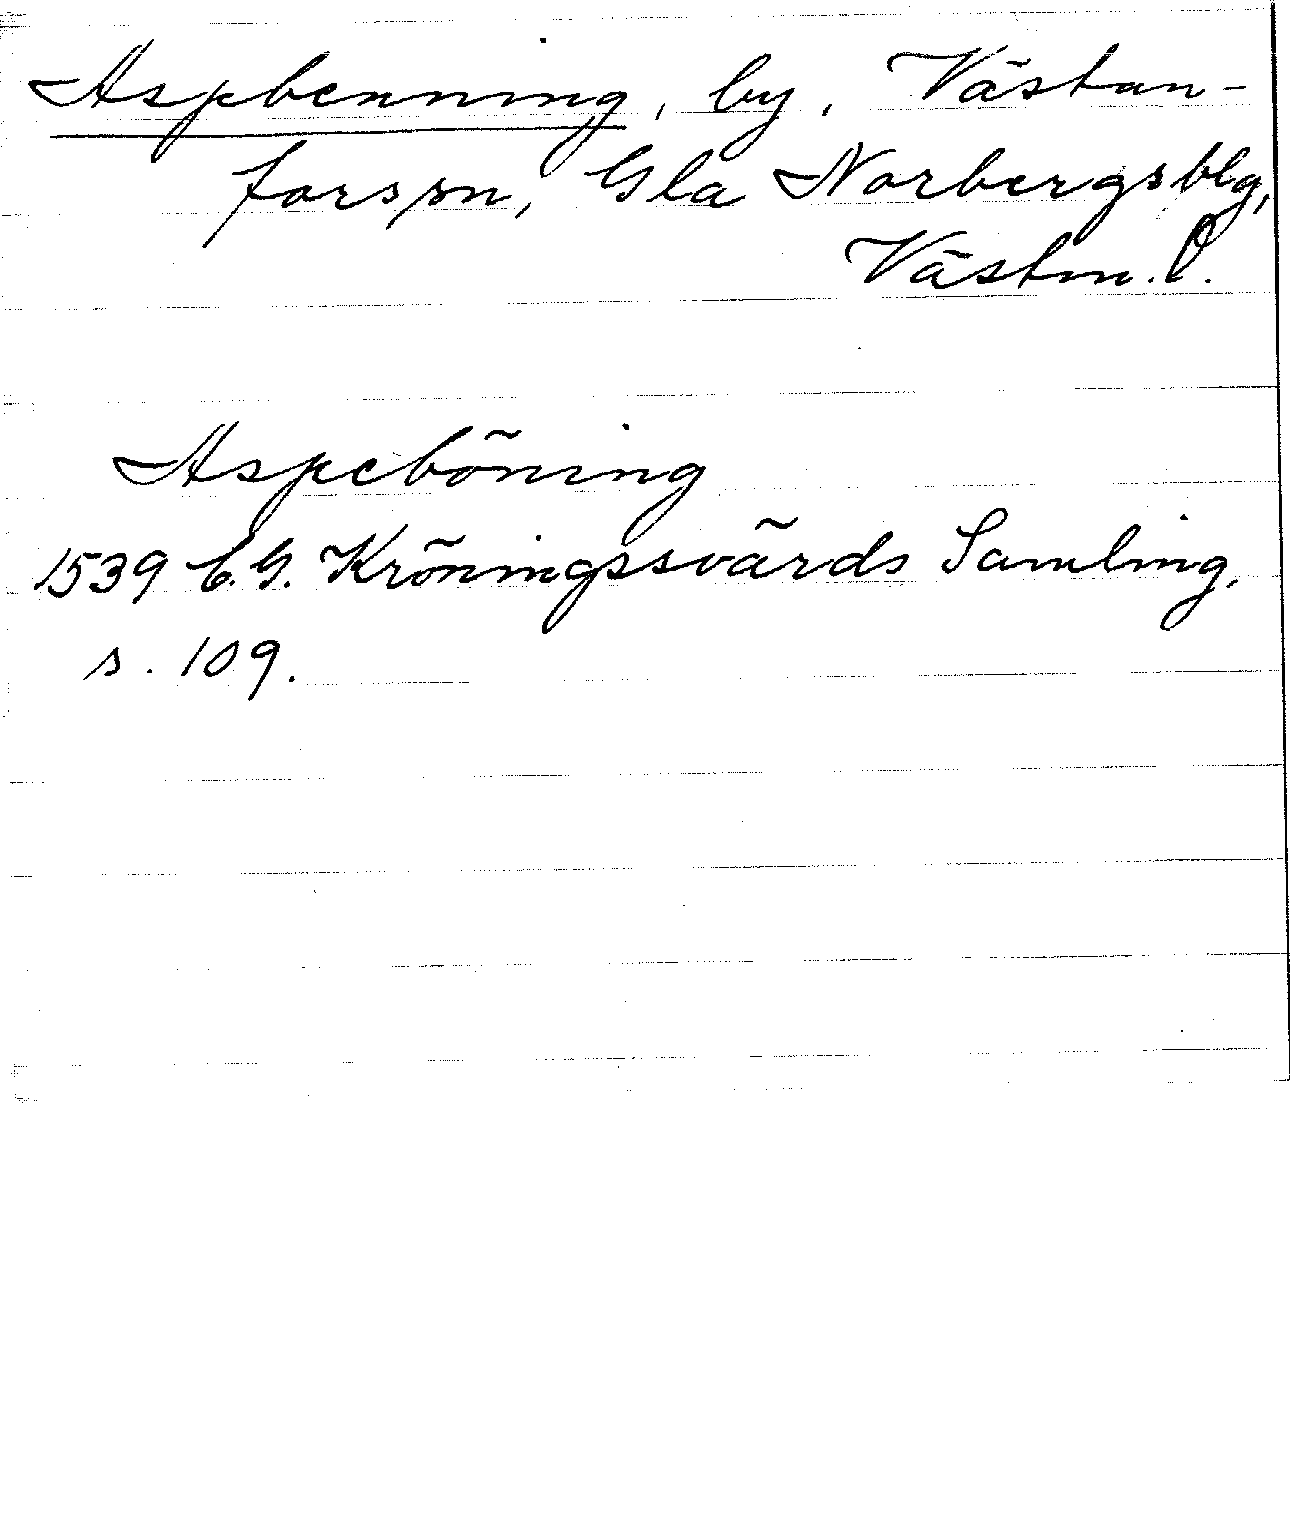 Aspbenning, by, Västan-
fors sn, Gla Norbergsblg,
Västm. l.
Aspeböning
1539 C.G. Kröningssvärds Samling,
s. 109.